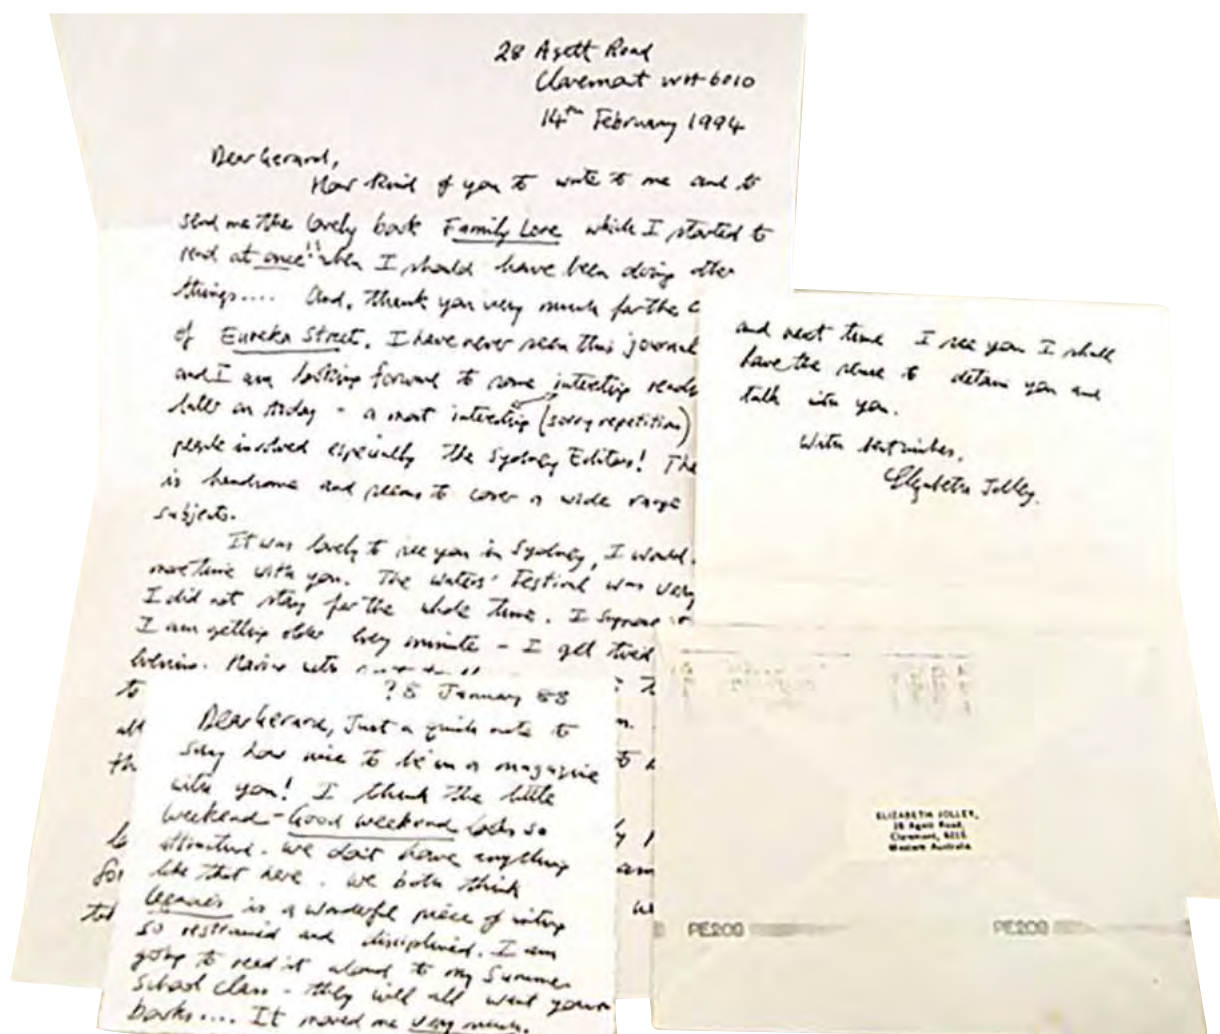 28 Agett Road
Claremont WA 6010
14th February 1994
Dear Gerard,
How kind of you to write to me and to
send me the lovely book Family Lore which I started to
read at once!! when I should have been doing other
things.... And, thank you very much for the
of Eureka Street. I have never seen this journal
and I am looking forward to some interesting
later on today - a most interesting (sorry repetition)
people involved especially the Sydney Editors! The
is handsome and seems to cover a wide range
subjects.
It was lovely to see you in Sydney, I would
more time with you. The Writers' Festival was very
I did not stay for the whole time. I suppose it
I am getting older every minute - I get tired
to
? 5 January 88
Dear Gerard, Just a quick note to
say how nice to be in a magazine
with you! I think the little
weekend - Good Weekend looks so
attractive. We don't have anything
like that here. We both think
Legacies is a wonderful piece of writing
so restrained and disciplined. I am
going to read it aloud to my Summer
School class - they will all want your
books.... It moved me very much.
and next time I see you I shall
have the sense to detain you and
talk with you.
With best wishes,
Elizabeth Jolley.
ELIZABETH JOLLEY,
28 Agett Road,
Claremont, 6010
Western Australia
PE208 PE208